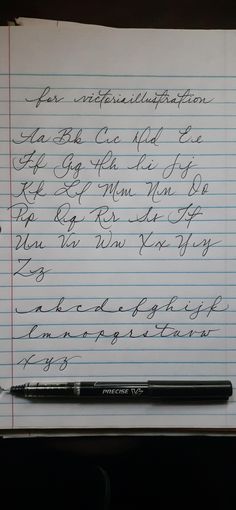 for victoriaillustration
Aa Bb Cc Dd Ee
Ff Gg Hh Ii Jj
Kk Ll Mm Nn Oo
Pp Qq Rr Ss Tt
Uu Vv Ww Xx Yy
Zz
abcdefghijk
lmnopqrstuvw
xyz
PRECISE V5